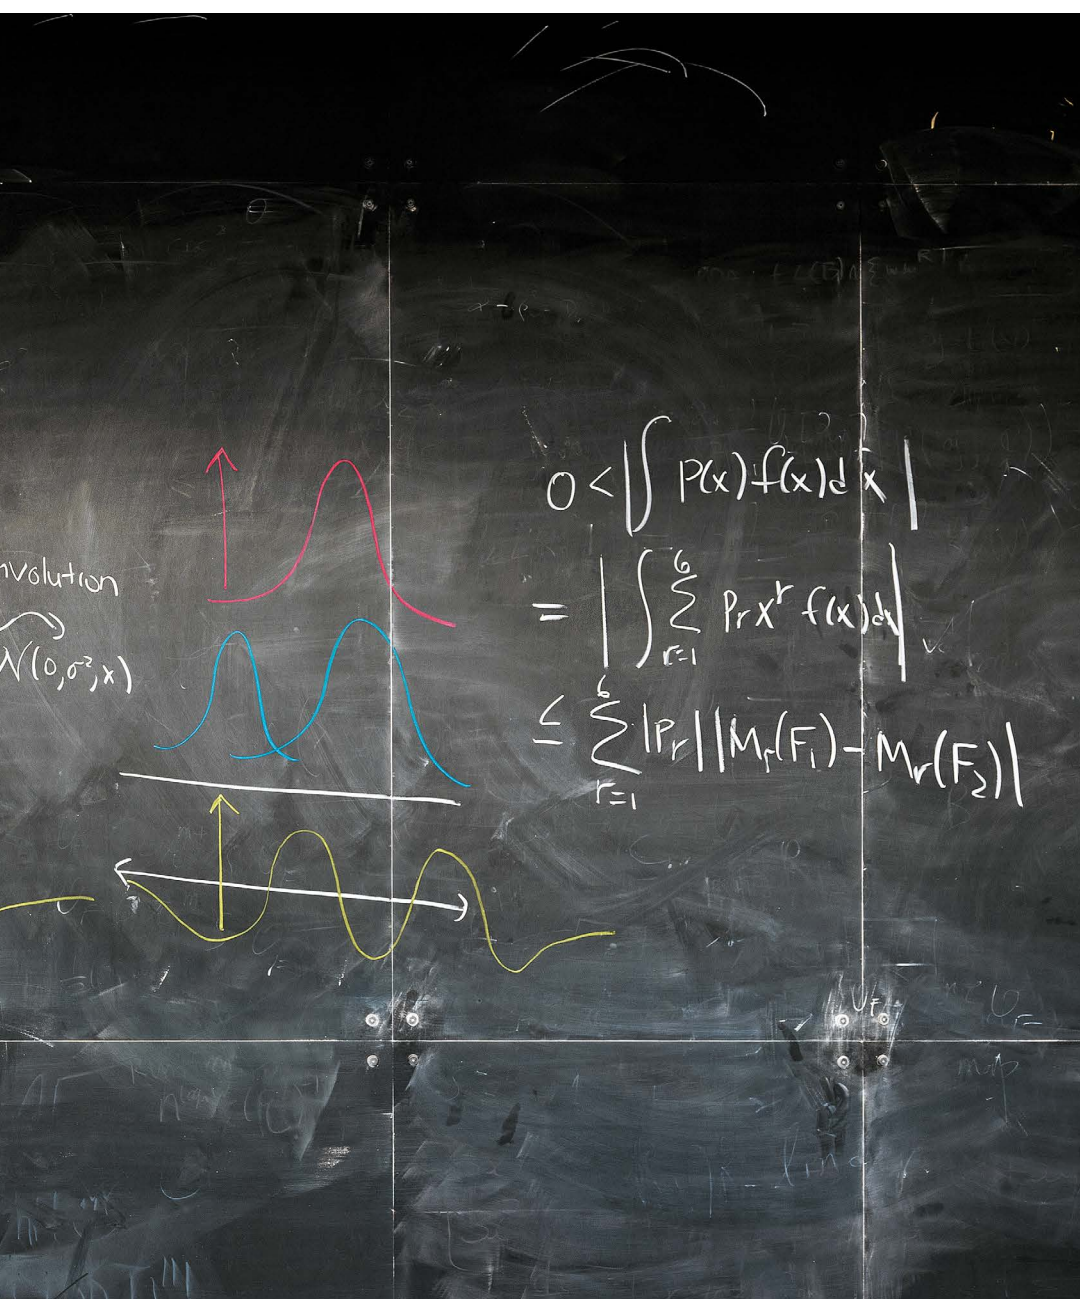 nvolution
N(0,σ²,x)
0 < |∫ p(x) f(x) dx|
= |∫ 6 Σ r=1 Prx^r f(x)dx|
≤ 6 Σ r=1 |Pr||Mr(F₁) - Mr(F₂)|